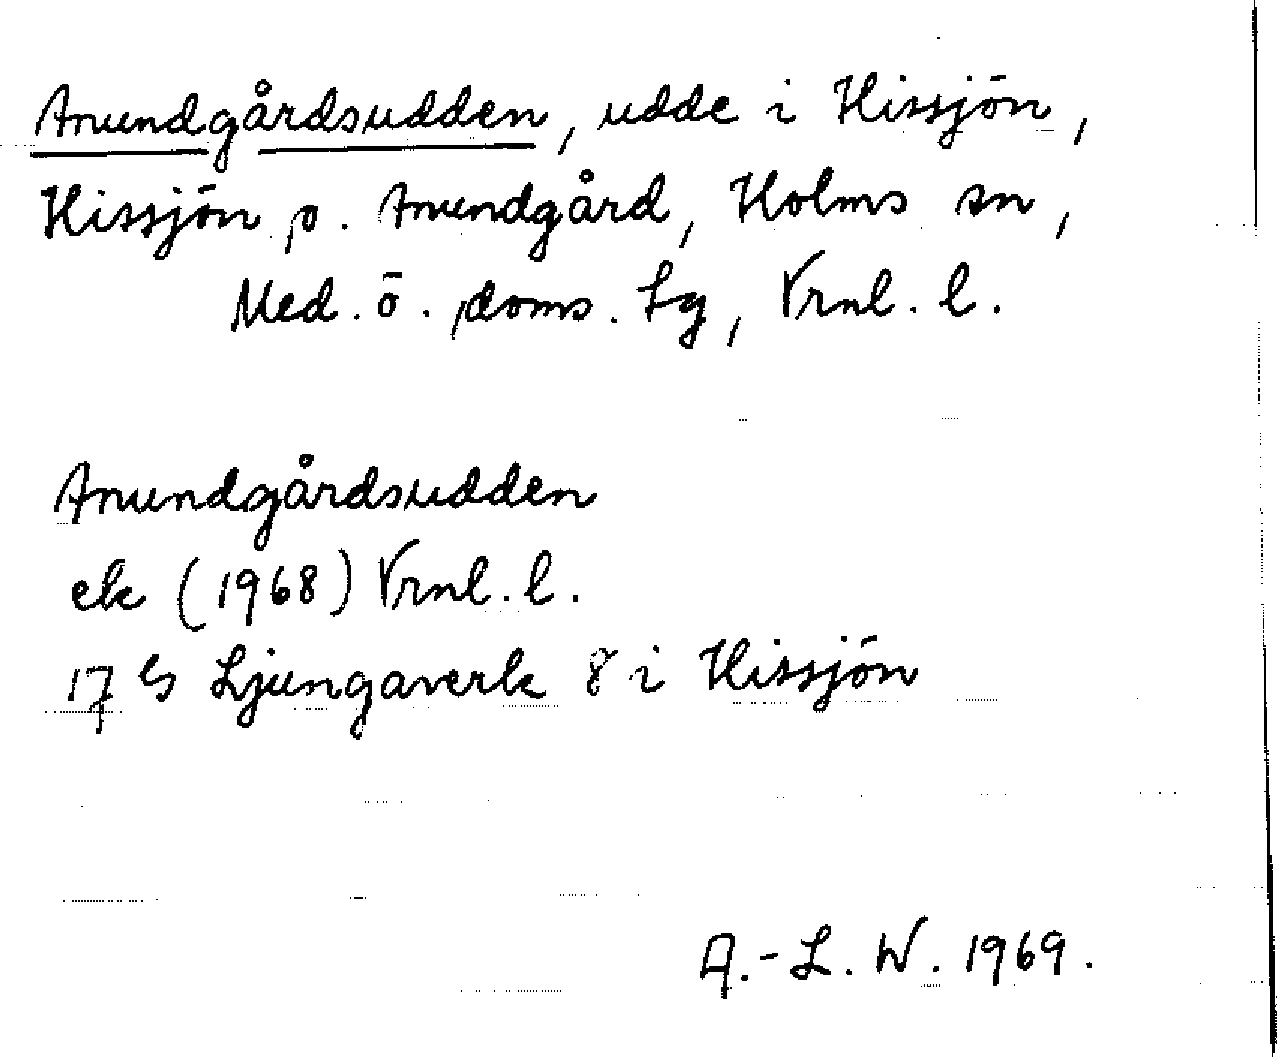 Anundgårdsudden, udde i Hissjön,
Hissjön o. Anundgård, Holms sn,
Med. ö. doms. Lg, Vrnl. l.
Anundgårdsudden
ek (1968) Vrnl. l.
17 G Ljungaverk 8 i Hissjön
A.-L. W. 1969.